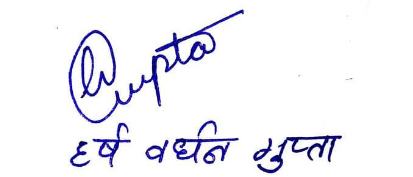 Gupta
हर्ष वर्धन गुप्ता